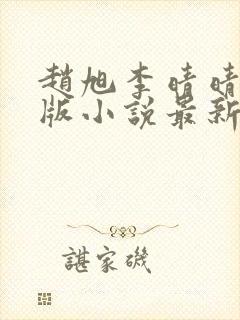 趙旭李晴晴
版小說最新
諶家磯